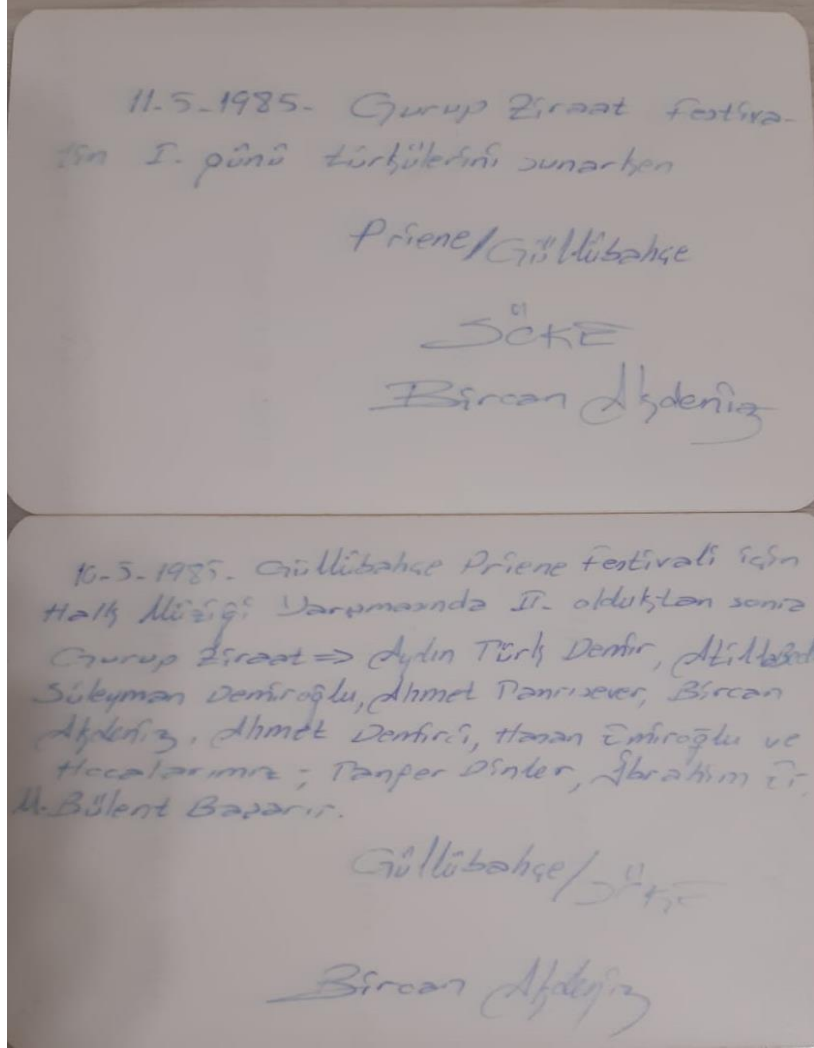 11-5-1985- Gurup Ziraat festiva-
lin I. günü türkülerini sunarken
Priene/Güllübahçe
SÖKE
Bircan Akdeniz
10-5-1985. Güllübahçe Priene Festivali için
Halk Müziği Yarışmasında II. olduktan sonra
Gurup Ziraat => Aydın Türk Demir,
Süleyman Demiroğlu, Ahmet Tanrısever, Bircan
Akdeniz, Ahmet Demirci, Hasan Emiroğlu ve
Hocalarımız ; Tanper Dinler, İbrahim
M. Bülent Başarır.
Güllübahçe/SÖKE
Bircan Akdeniz